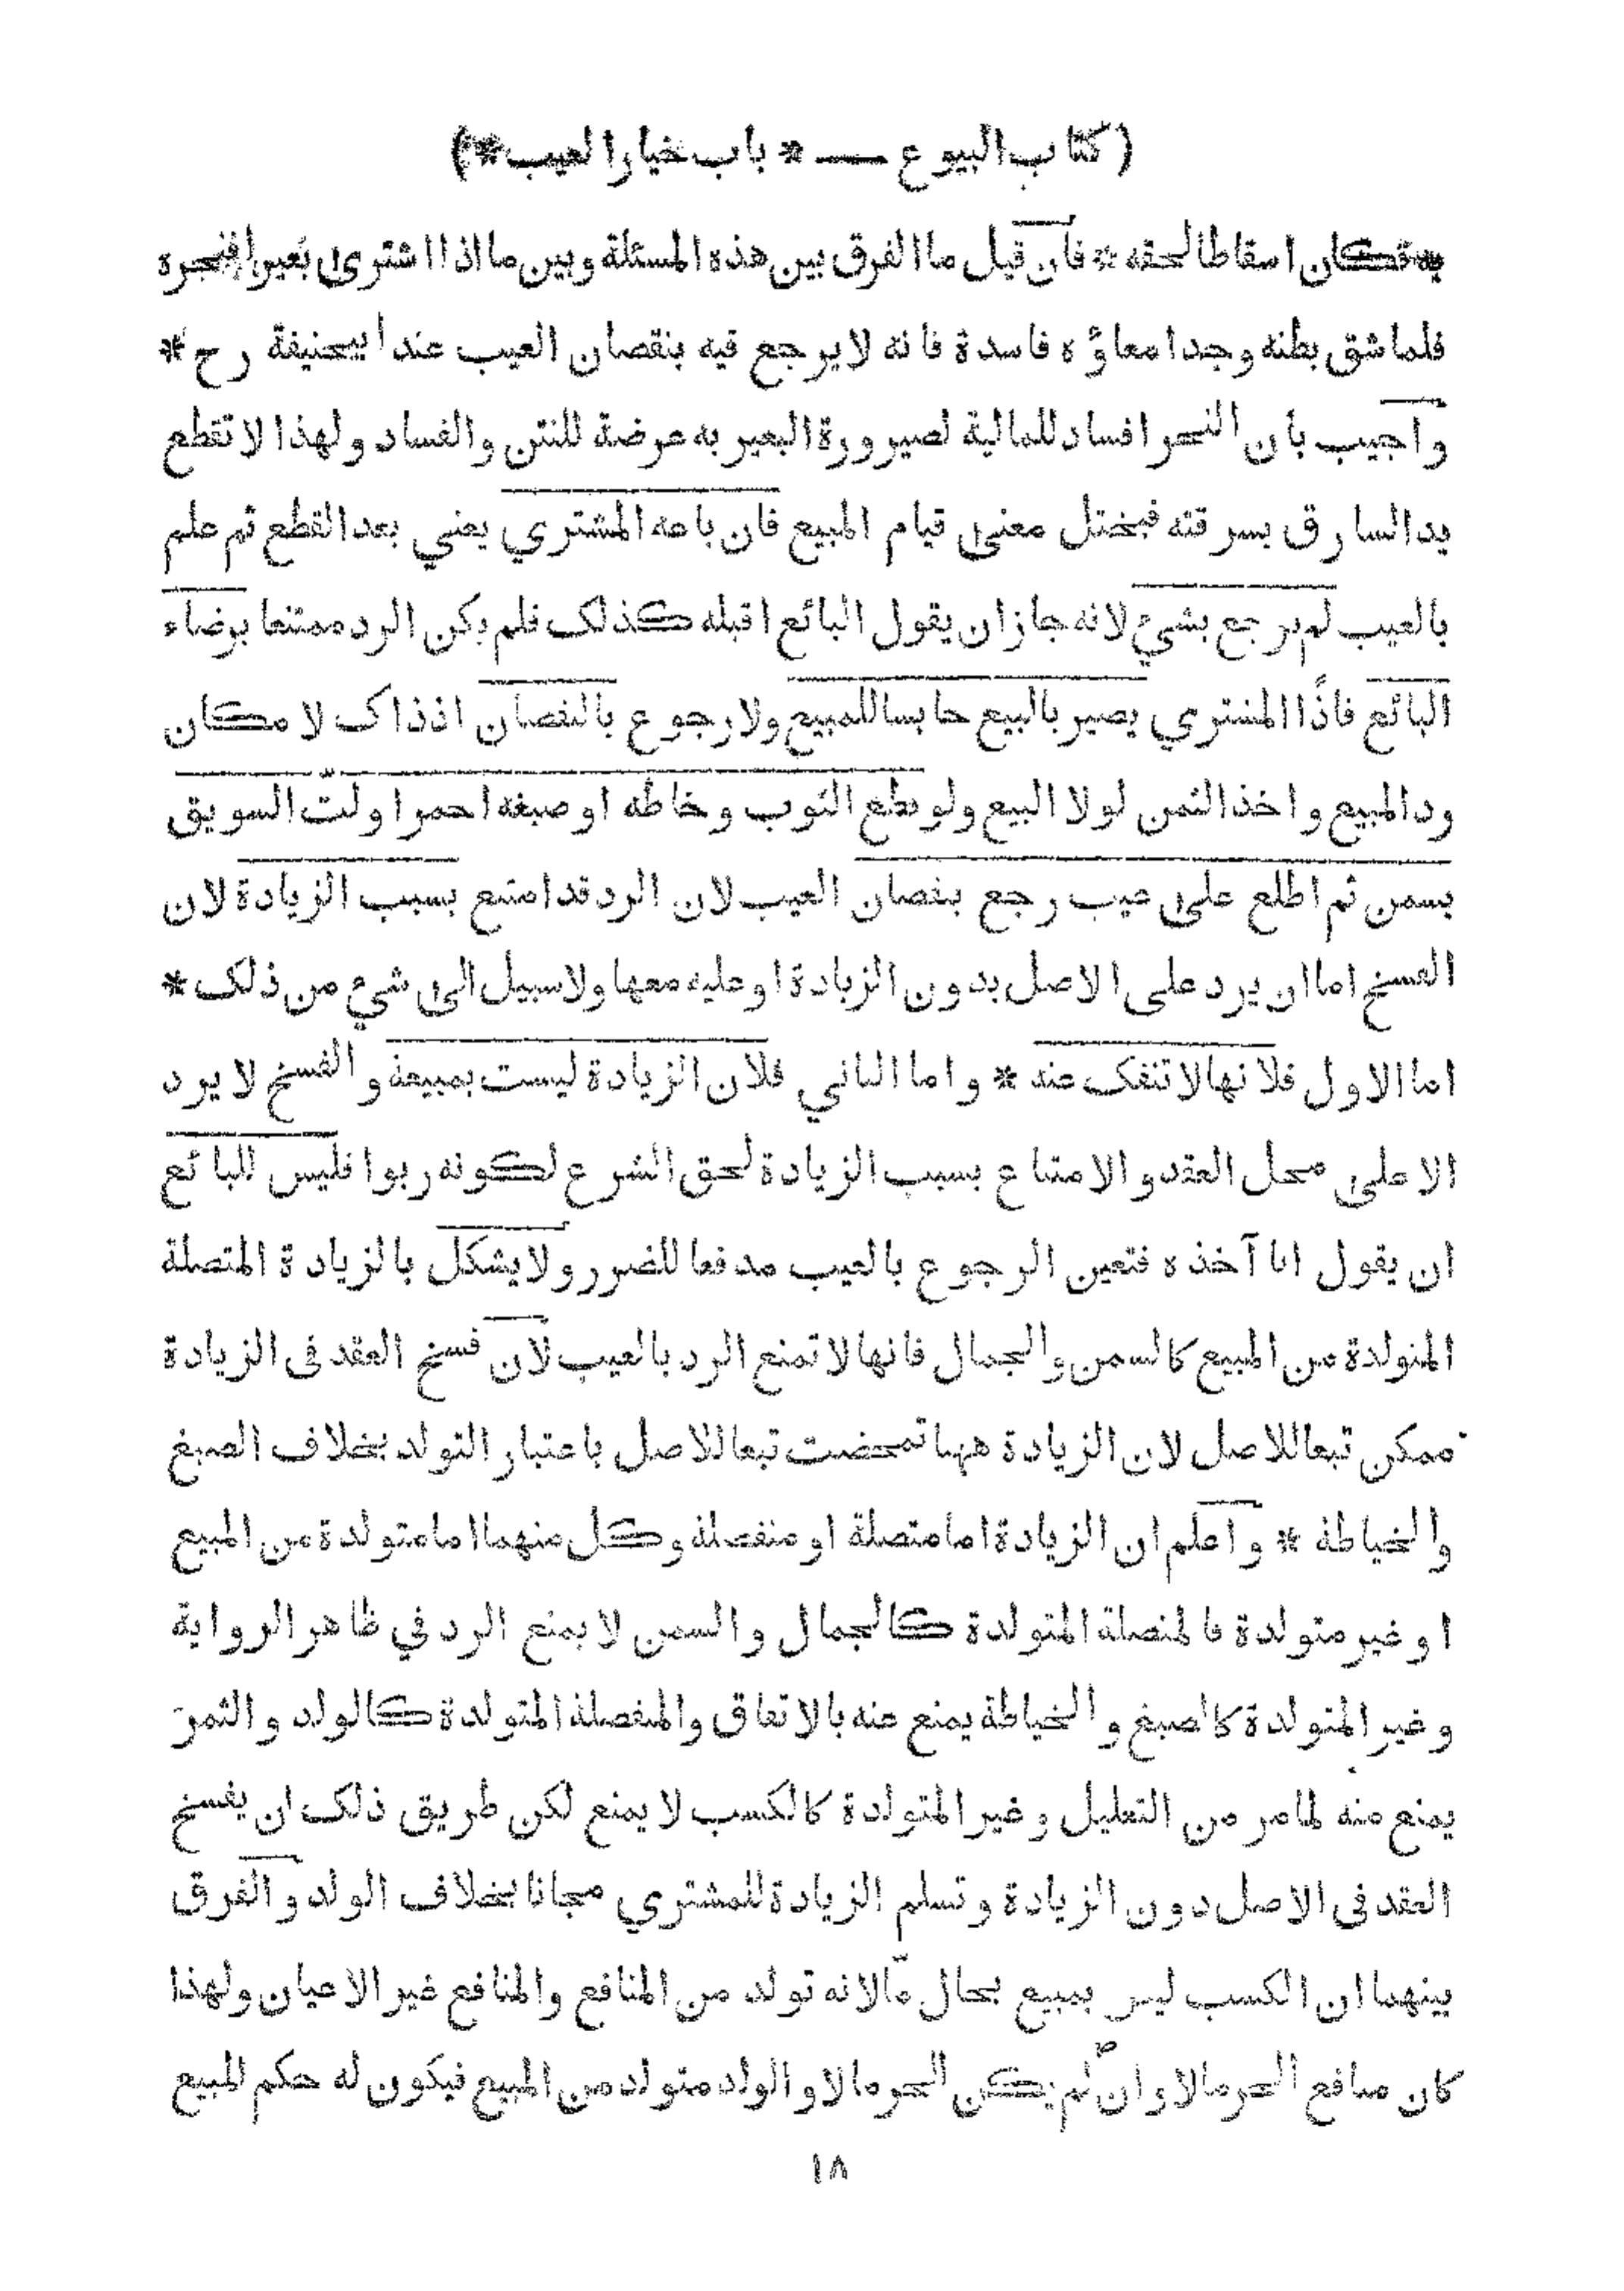 (كتاب البيوع — * باب خيار العيب *)
به فكان اسقاطا لحقه * فان قيل ما الفرق بين هذه المسئلة وبين ما اذا اشترى بعيرا فنحره
فلما شق بطنه وجد امعاؤه فاسدة فانه لا يرجع فيه بنقصان العيب عند ابيحنيفة رح *
واجيب بان النحر افساد للمالية لصيرورة البعير به عرضة للنتن والفساد ولهذا لا تقطع
يد السارق بسرقته فيختل معنى قيام المبيع فان باعه المشتري يعني بعد القطع ثم علم
بالعيب لم يرجع بشيء لانه جاز ان يقول البائع اقبله كذلك فلم يكن الرد ممتنعا برضاء
البائع فاذًا المشتري يصير بالبيع حابسا للمبيع ولا رجوع بالنقصان اذ ذاك لا مكان
رد المبيع واخذ الثمن لولا البيع ولو قطع الثوب وخاطه او صبغه احمر او لتّ السويق
بسمن ثم اطلع على عيب رجع بنقصان العيب لان الرد قد امتنع بسبب الزيادة لان
الفسخ اما ان يرد على الاصل بدون الزيادة او عليه معها ولا سبيل الى شيء من ذلك *
اما الاول فلانها لا تنفك عنه * واما الثاني فلان الزيادة ليست بمبيعة والفسخ لا يرد
الا على محل العقد والامتناع بسبب الزيادة لحق الشرع لكونه ربوا فليس للبائع
ان يقول انا آخذه فتعين الرجوع بالعيب مدفعا للضرر ولا يشكل بالزيادة المتصلة
المتولدة من المبيع كالسمن والجمال فانها لا تمنع الرد بالعيب لان فسخ العقد في الزيادة
ممكن تبعا للاصل لان الزيادة ههنا تمحضت تبعا للاصل باعتبار التولد بخلاف الصبغ
والخياطة * واعلم ان الزيادة اما متصلة او منفصلة وكل منهما اما متولدة من المبيع
او غير متولدة فالمتصلة المتولدة كالجمال والسمن لا يمنع الرد في ظاهر الرواية
وغير المتولدة كالصبغ والخياطة يمنع عنه بالاتفاق والمنفصلة المتولدة كالولد والثمر
يمنع منه لما مر من التعليل وغير المتولدة كالكسب لا يمنع لكن طريق ذلك ان يفسخ
العقد في الاصل دون الزيادة وتسلم الزيادة للمشتري مجانا بخلاف الولد والفرق
بينهما ان الكسب ليس بمبيع بحال مّا لانه تولد من المنافع والمنافع غير الاعيان ولهذا
كان منافع الحر مالا وان لم يكن الحر مالا والولد متولد من المبيع فيكون له حكم المبيع
١٨